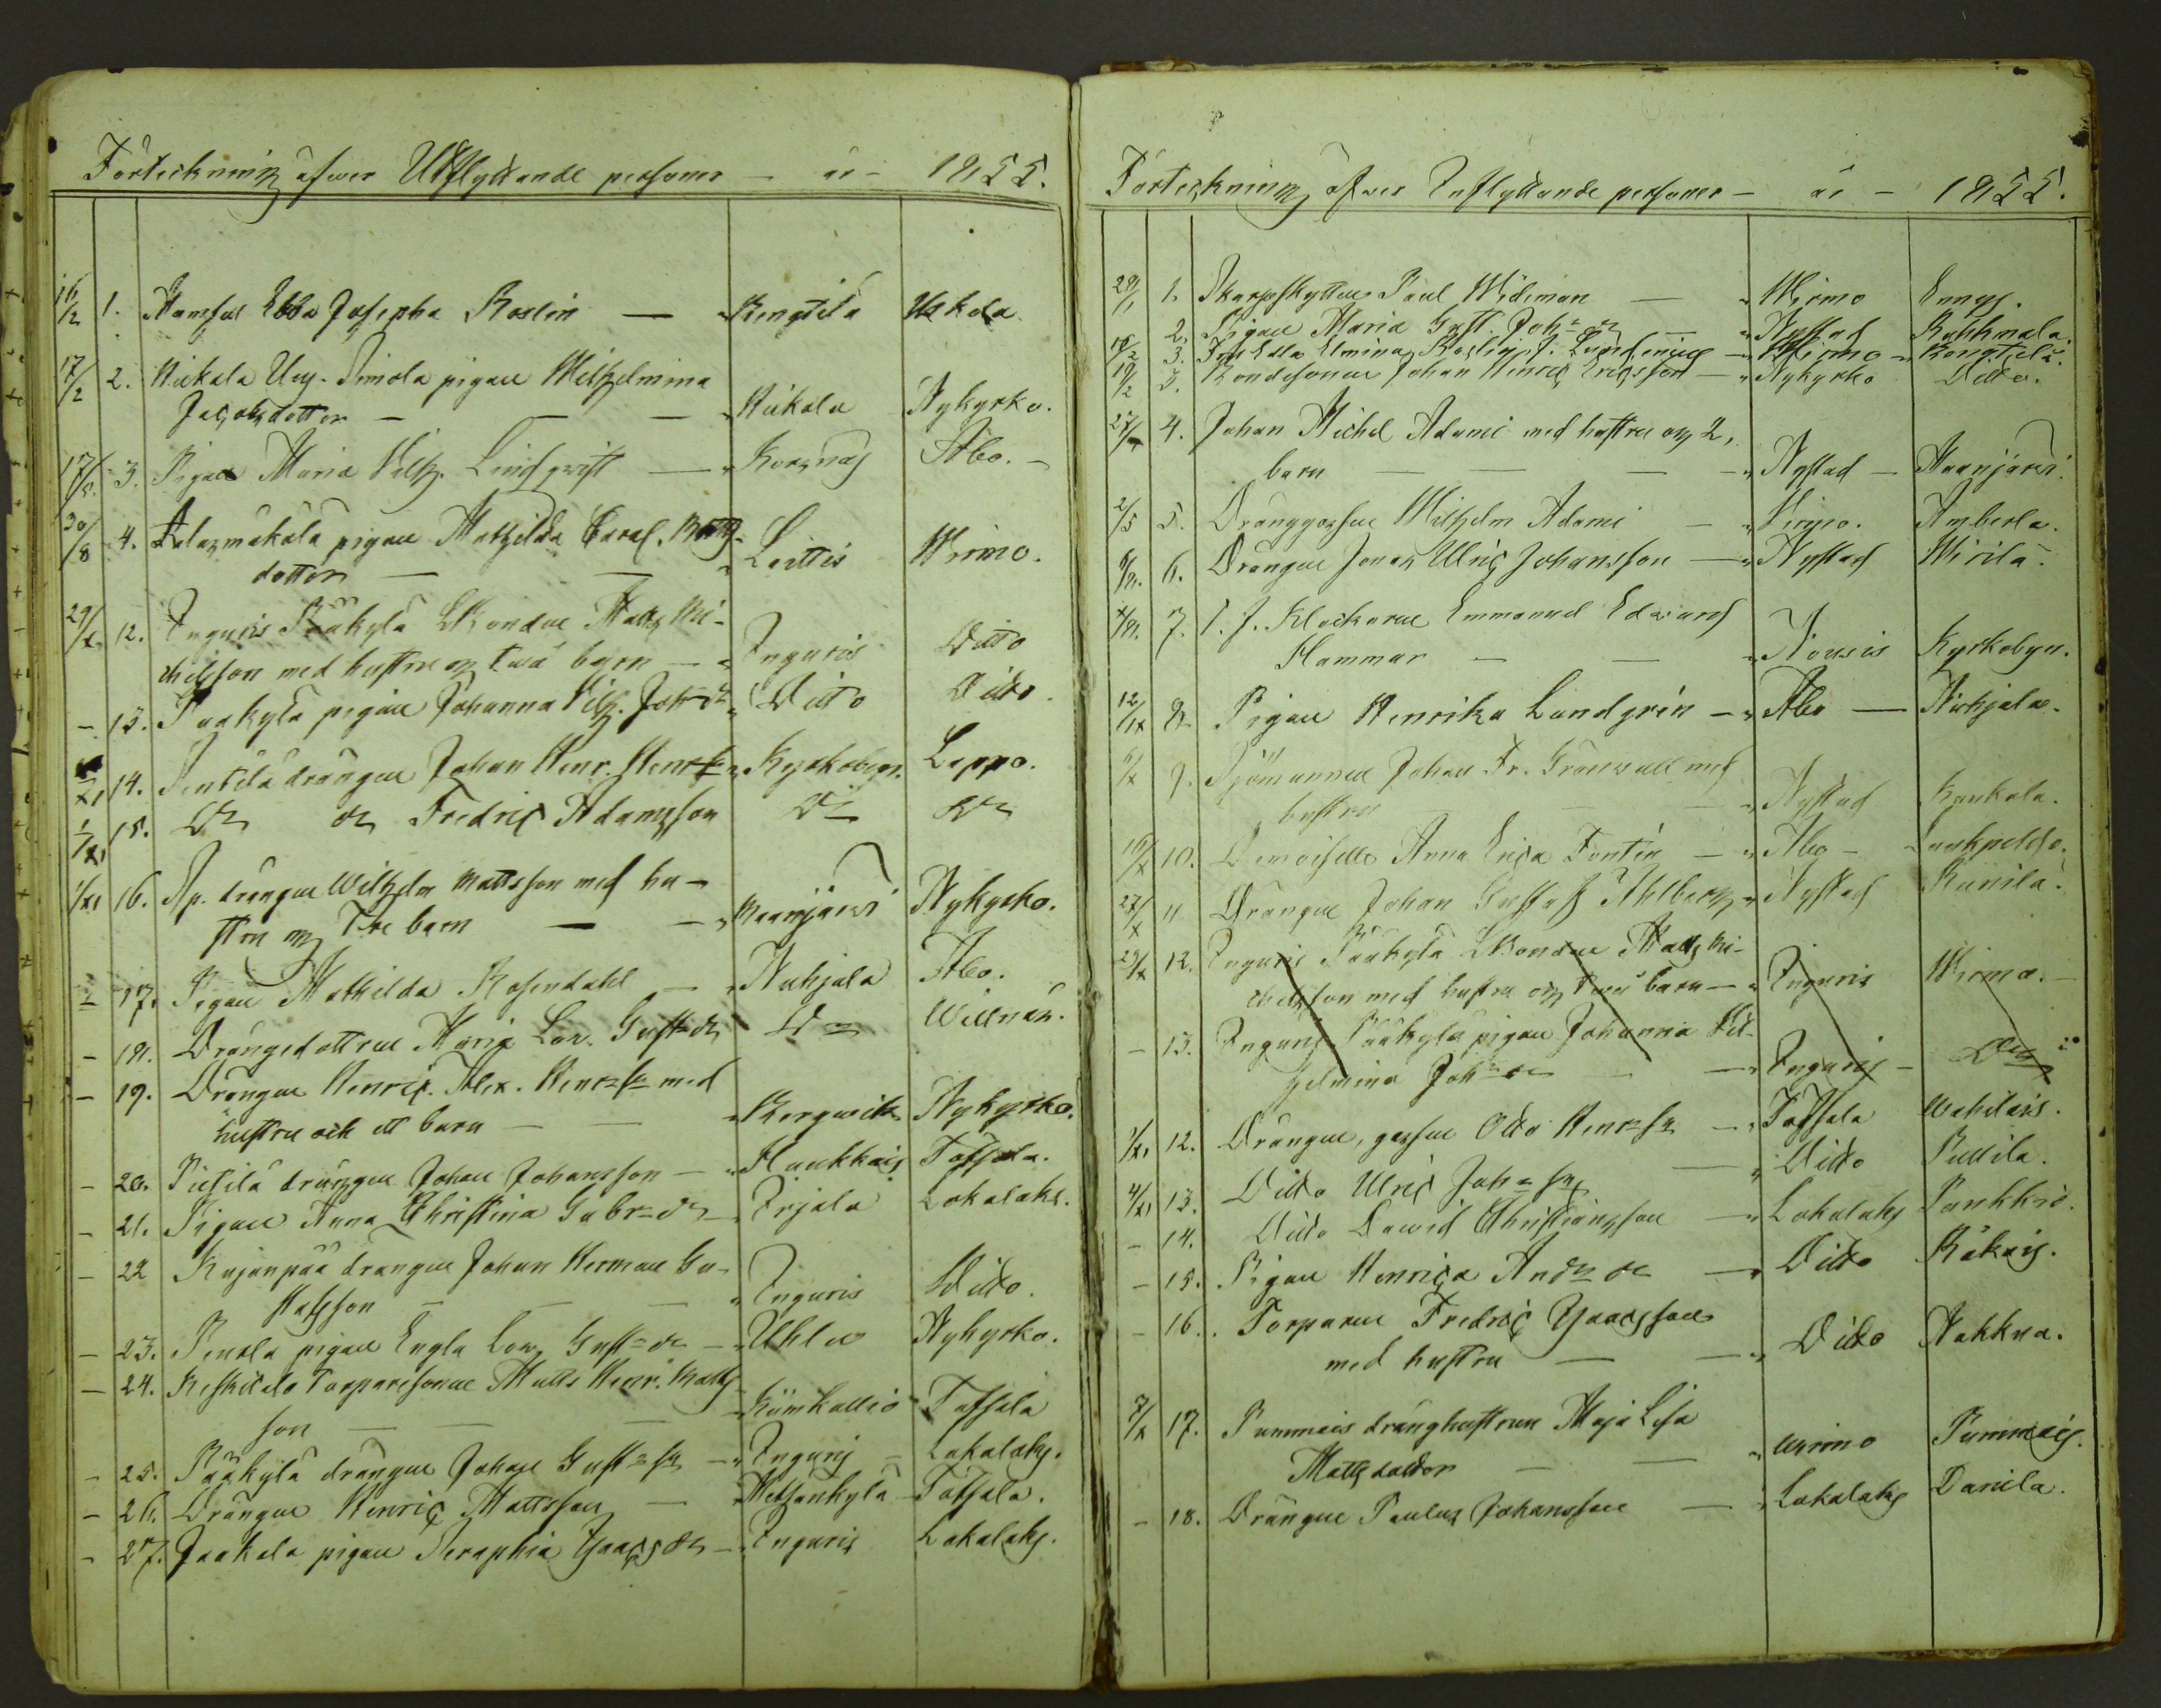 Förteckning öfwer Utflyttande personer - år - 1855.
16/2 1. Mamsel Ebba Josepha Roslin — Bengtilä
17/2 2. Wilhelmina
Jacobsdotter — Nykyrko.
17/5. 3. Pigan Maria Vilh. Lindqvist — Korsnäs Åbo. -
30/8 4. pigan Mathilda Carol. Matts-
dotter — Lettis Wirmo.
29/X 12. Inguris Pääkylä Bonden Matts Mi-
chelsson med hustru och twå barn — Inguris Ditto
- 13. Pääkylä pigan Johanna Vilh. Joh:dr Ditto Ditto.
14. Penttilä drängen Johan Henr. Kyrkobyn. Lappo.
1/XI 15. Do do Fredric Adamsson Do Do
1/XI 16. drängen Wilhelm Mattsson med hu-
stru och Tre barn — Maanjärvi Nykyrko.
- 17. Pigan Mathilda Rosendahl — Nuhjala Åbo.
- 18. Drängedottren Maria Lov. Gust:dr Do Willnäs.
- 19. Drängen Henric Alex. Henr:s. med
hustru och ett barn — Bergwik Nykyrko.
- 20. drängen Johan Johansson — Haukkais Töfsala.
- 21. Pigan Anna Christina Gabr:dr — Irjala Lokalaks.
- 22 Kujanpää drängen Johan Herman Gu-
stafsson — Inguris Ditto.
- 23. pigan Engla Lov. Gust:dr — Uhlu Nykyrko.
- 24. Torparesonen Matts Henr. Matts
son — Kiimkallio Töfsala
- 25. Pääkylä drängen Johan Gust:sn — Inguris Lokalaks.
- 26. Drängen Henric Mattsson — Metsänkylä Töfsala.
- 27. Jaakola pigan Seraphia Isaacsdr — Inguris Lokalaks.
Förteckning öfwer Inflyttande personer - år - 1855.
29/1 1. Skarpskytten Paul Wideman — Wirmo
2. Pigan Maria Gust. Joh:dr — Nystad
18/2 3. Elmina Roslin, f. Lundenius — Wirmo — Bengtilä.
19/2 3. Bondesonen Johan Henric Ericsson — Nykyrko Ditto.
4. Johan Michel Adami med hustru och 2,
barn — Nystad — Maanjärvi.
2/5 5. Dränggossen Wilhelm Adami — Wirmo. Amberla.
6. Drängen Jonas Ulric Johansson — Nystad Wirilä.
7. Klockaren Emmanuel Edvard
Hammar — Nousis Kyrkobyn.
12/IX 8. Pigan Henrika Lundgrén — Åbo — Nuhjala.
9. Sjömannen Johan Fr. Grönwall med
hustru — Nystad Kankola.
16/X 10. Demoiselle Anna Erica Fontin — Åbo - Laukpeldo.
27/X 11 Drängen Johan Gustaf Ahlberg — Nystad Kunila.
29/X 12. Inguris Pääkylä Bonden Matts Mi-
chelsson med hustru och twå barn — Inguris Wirmo. -
- 13. Inguris Pääkylä pigan Johanna Vil-
helmina Joh:dr — Inguris - Do
1/XI 12. Drängen, gossen Otto Henr:sn — Töfsala Wehdais.
4/XI 13. Ditto Ulric Joh:sn — Ditto Pullila.
- 14. Ditto Dawid Christiansson — Lokalaks Pankkio.
- 15. Pigan Henrica And:dr — Ditto Räkais.
- 16. Torparen Fredric Isaacsson
med hustru — Ditto Nakkna.
7/X 17. Pummais dränghustrun Maja Lisa
Mattsdotter — Wirmo Pummais.
- 18. Drängen Paulus Johansson — Lokalaks Danila.